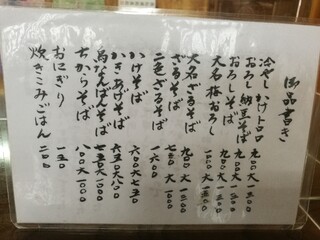 御品書き
冷やしかけトロロ 九〇〇 大 一三〇〇
おろし納豆そば 九〇〇 大 一三〇〇
おろしそば 九〇〇 大 一三〇〇
大名梅おろし 一一〇〇 大 一五〇〇
大名ざるそば 九〇〇 大 一三〇〇
ざるそば 七五〇 大 一〇〇〇
二色ざるそば 一六〇〇
かけそば 六〇〇 大 七五〇
かきあげそば 六五〇 大 八〇〇
鳥なんばんそば 七五〇 大 一〇〇〇
ちからそば 八〇〇 大 一〇〇〇
おにぎり 一五〇
炊きこみごはん 二〇〇